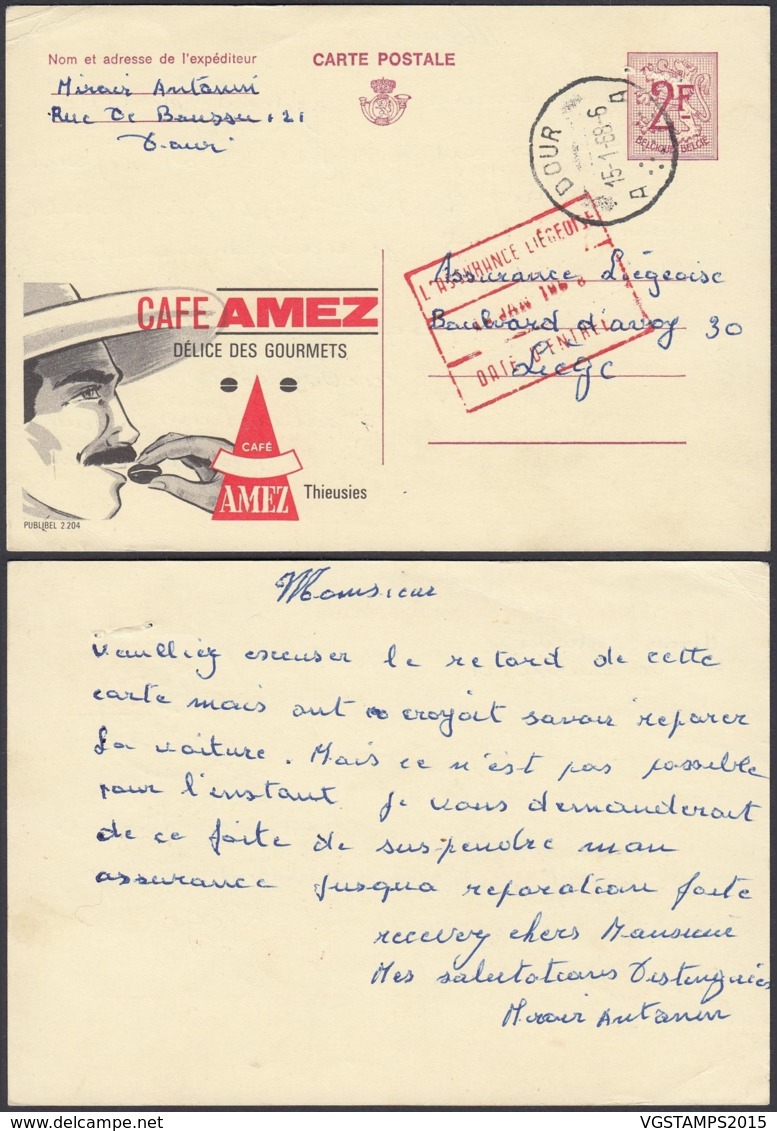 Nom et adresse de l'expéditeur
CARTE POSTALE
Miroir Antonin
Rue De Boussu 121
Dour
2F
BELGIQUE BELGIË
DOUR
15-1-68-6
A A
L'ASSURANCE LIÉGEOISE
JAN
DATE D'ENTREE
Assurance Liégeoise
Boulvard d'avoy 30
Liege
CAFE AMEZ
DÉLICE DES GOURMETS
CAFÉ
AMEZ
Thieusies
PUBLIBEL 2204
Monsieur
veulliez escuser le retard de cette
carte mais ont croyait savoir reparer
la voiture. Mais ce n'est pas possible
pour l'instant je vous demanderait
de ce faite de suspendre mon
assurance jusqua reparation faite
recevez chers Monsieur
Mes salutations Distinguées
Miroir Antonin
VGSTAMPS2015